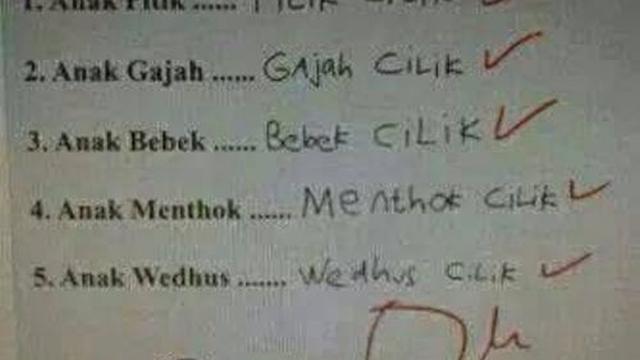 1. Anak Pitik ......
2. Anak Gajah ...... Gajah CiLiK
3. Anak Bebek ...... Bebek CiLiK
4. Anak Menthok ...... Menthok CiLiK
5. Anak Wedhus ....... Wedhus CiLiK